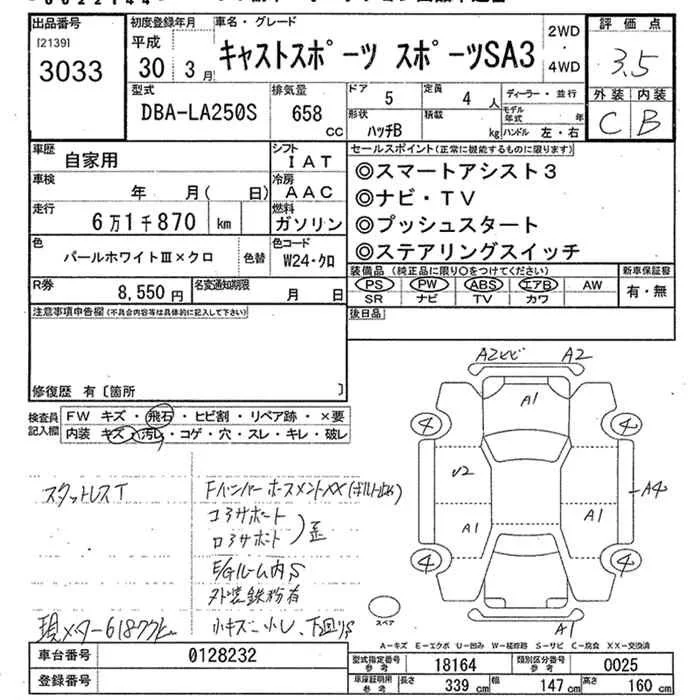 出品番号
[2139]
3033
初度登録年月
平成
30年 3月
車名・グレード
キャストスポーツ スポーツSA3
2WD
・
4WD
評価点
3.5
外装 内装
C B
型式
DBA-LA250S
排気量
658 cc
ドア
5
定員
4人
ディーラー・並行
形状
ハッチB
積載
kg
モデル年式 年
ハンドル 左・右
車歴
自家用
シフト
IAT
車検
年 月( 日)
冷房
AAC
走行
6万1千870 km
燃料
ガソリン
色
パールホワイトⅢ×クロ
色替
色コード
W24・クロ
R券
8,550円
名変通知期限
月 日
セールスポイント(正常に機能するものに限ります)
◎スマートアシスト3
◎ナビ・TV
◎プッシュスタート
◎ステアリングスイッチ
装備品(純正品に限り○をつけてください)
PS PW ABS エアB AW
SR ナビ TV カワ
新車保証書
有・無
後日品
注意事項申告欄(不具合内容等は具体的に記入して下さい)
修復歴 有〔箇所 〕
検査員記入欄
FW キズ・飛石・ヒビ割・リペア跡・×要
内装 キズ・汚レ・コゲ・穴・スレ・キレ・破レ
スタットレスT
Fバンパーホースメント××(ボルト止め)
コアサポート
ロアサポート 歪
E/Gルーム内S
外装鉄粉有
現メーター61877km
小キズ 小U、下回りS
A2ヒビ A2
A1
4 4
U2
A4
A1 A1
4 4
A1
スペア
A－キズ E－エクボ U－凹み W－補修跡 S－サビ C－腐食 XX－交換済
車台番号
0128232
登録番号
型式指定番号参考
18164
類別区分番号参考
0025
車庫証明用参考
長さ 339 cm 幅 147 cm 高さ 160 cm